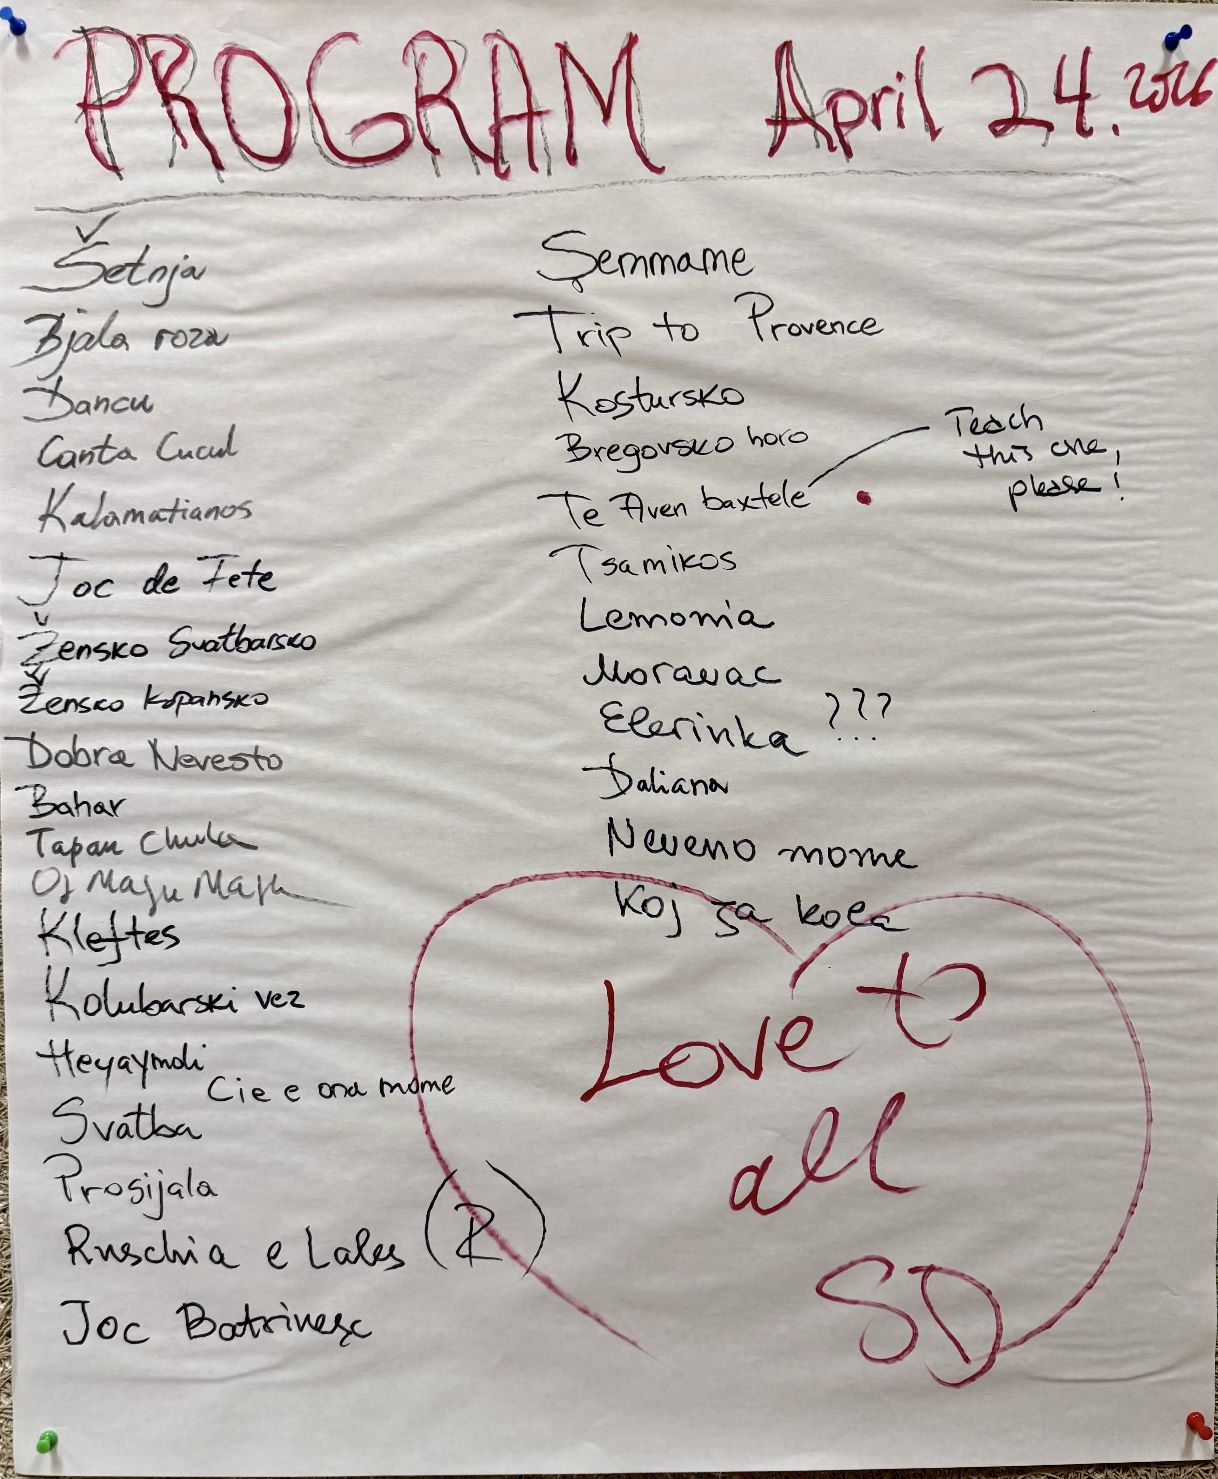 PROGRAM April 24. 2026
Šetnja
Bjala roza
Dancu
Canta Cucul
Kalamatianos
Joc de Fete
Žensko Svatbarsko
Žensko Kopansko
Dobra Nevesto
Bahar
Tapan Chuka
Oj Maju Maju
Kleftes
Kolubarski vez
Heyaymoli
Cie e ona mome
Svatba
Prosijala
Ruschia e Lales (R)
Joc Batrinesc
Şemmame
Trip to Provence
Kostursko
Bregovsko horo
Te Aven baxtele
Teach
this one,
please!
Tsamikos
Lemonia
Moravac
Elerinka ???
Daliana
Neveno mome
Koj ša kole
Love to
all
SD